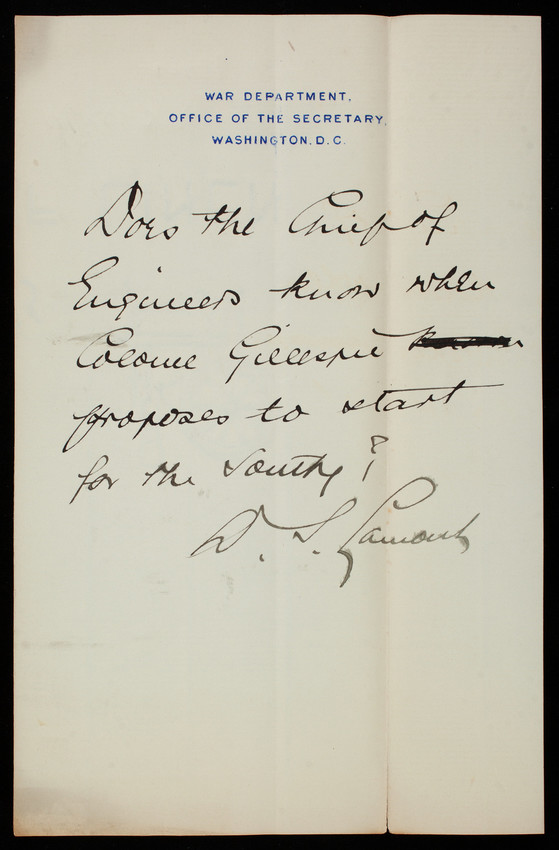 WAR DEPARTMENT,
OFFICE OF THE SECRETARY,
WASHINGTON, D.C.
Does the Chief of
Engineers know when
Colonel Gillespie
proposes to start
for the South?
D. S. Lamont